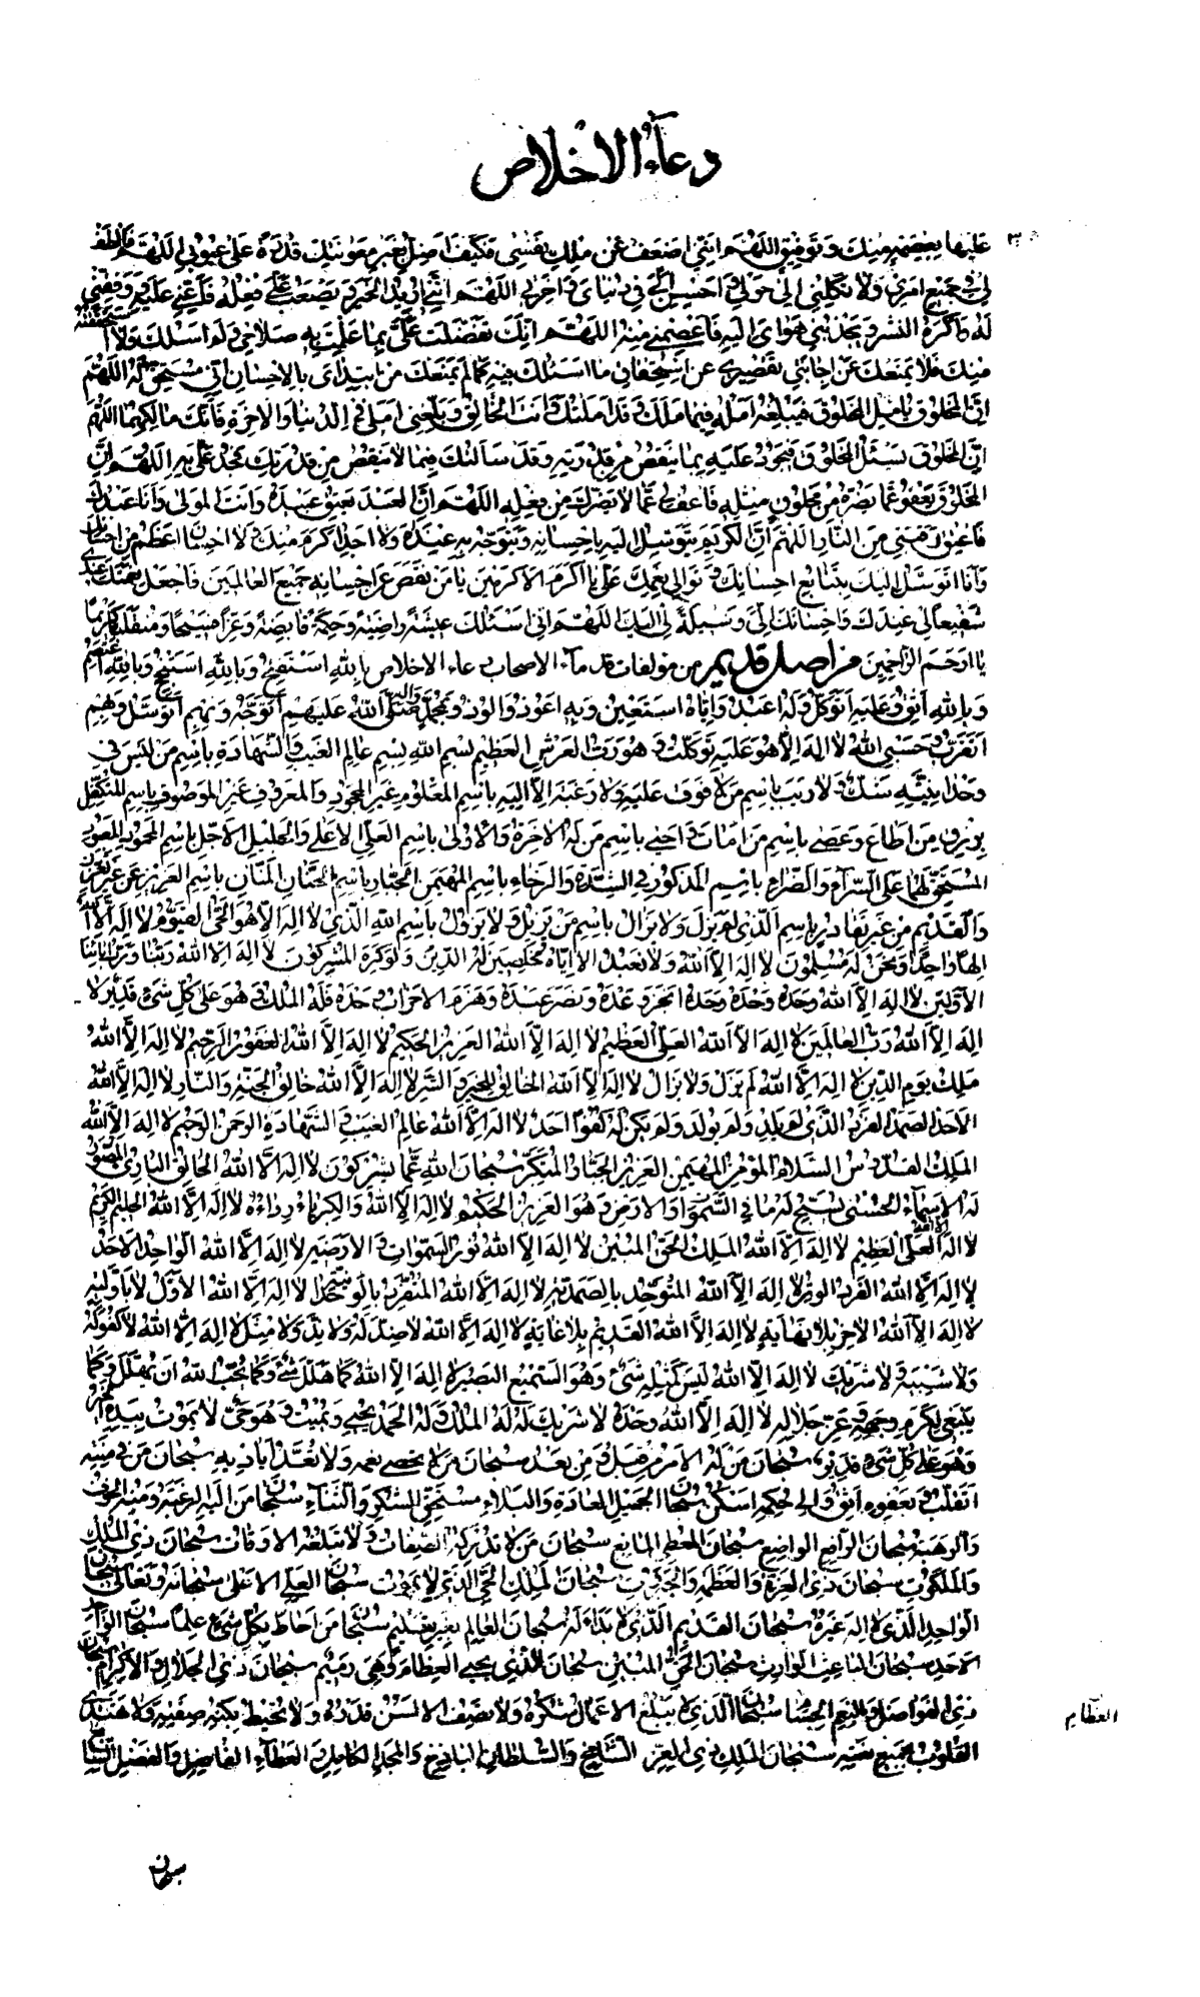 دعاء الاخلاص
عليها بعصمة منك وتوفيق اللهم انني اضعف عن ملك نفسي فكيف اصل بغير معونتك قدرة على عيوبي اللهم فالطف
لي في جميع امري ولا تكلني الى حولي واحسن الي في دنياي واخرتي اللهم انني اريد الخير ويصعب علي فعله فاعني عليه ووفقني
له واكره الشر ويجذبني هواي اليه فاعصمني منه اللهم انك تفضلت علي بما علمت به صلاحي ولم اسئلك ولا
منك فلا يمنعك عن اجابتي تقصيري عن استحقاق ما اسئلك فيه كما لم يمنعك من ابتدائي بالاحسان اني مستحق له اللهم
ان المخلوق ياميل المخلوق فيبلغه امله فيما ملك وقد املتك وانت الخالق وبلغني املي في الدنيا والاخرة فانك مالكهما اللهم
ان المخلوق يسئل المخلوق فيجود عليه بما ينقص من قدرته وقد سالتك فيما لا ينقص من قدرتك فجد علي به اللهم ان
المخلوق يعفو عما يضره من مخلوق مثله فاعف لي عما لا يضرك من فعله اللهم ان العبد يعتق عبيده وانت المولى وانا عبدك
فاعتق رقبتي من النار اللهم ان الكريم يتوسل اليه باحسانه ويتوجه به عنده ولا احد اكرم منك ولا احسان اعظم من احسانك
وانا اتوسل اليك بتتابع احسانك وتوالي نعمك علي يا اكرم الاكرمين يا من نقص عن احسانه جميع العالمين فاجعل نعمتك عندي
شفيعا لي عندك واحسانك الي وسيلة لي اليك اللهم اني اسئلك عيشة راضية وحكمة قابضة وعزا منيحا ومنقلبا كريما
يا ارحم الراحمين من اصل قديم من مؤلفات قدماء الاصحاب دعاء الاخلاص بالله استفتح وبالله استنجح وبالله اعتصم
وبالله اثق وعليه اتوكل وله اعبد واياه استعين وبه اعوذ والوذ وبمحمد واله صلى الله عليهم اتوجه وبهم اتوسل وبهم
اتقرب حسبي الله لا اله الا هو عليه توكلت وهو رب العرش العظيم بسم الله بسم عالم الغيب والشهادة باسم من ليس في
وحدانيته شك ولا ريب باسم من لا فوق عليه ولا رغبة الا اليه باسم المعلوم غير المحدود والمعروف غير الموصوف باسم المتكفل
برزق من اطاع وعصى باسم من امات واحيى باسم من له الاخرة والاولى باسم العلي الاعلى والجليل الاجل باسم المحمود المعبود
المستحق لهما على السراء والضراء باسم المذكور في الشدة والرخاء باسم المهيمن الجبار باسم الحنان المنان باسم العزيز من غير تعزز
والقديم من غير تقادم باسم الذي لم يزل ولا يزال باسم من يزيل ولا يزول باسم الله الذي لا اله الا هو الحي القيوم لا اله الا الله
الها واحدا ونحن له مسلمون لا اله الا الله ولا نعبد الا اياه مخلصين له الدين ولو كره المشركون لا اله الا الله ربنا ورب ابائنا
الاولين لا اله الا الله وحده وحده وحده انجز وعده ونصر عبده وهزم الاحزاب وحده فله الملك وهو على كل شئ قدير لا
اله الا الله رب العالمين لا اله الا الله العلي العظيم لا اله الا الله العزيز الحكيم لا اله الا الله الغفور الرحيم لا اله الا الله
ملك يوم الدين لا اله الا الله لم يزل ولا يزال لا اله الا الله الخالق للخير والشر لا اله الا الله خالق الجنة والنار لا اله الا الله
الاحد الصمد الفرد الذي لم يلد ولم يولد ولم يكن له كفوا احد لا اله الا الله عالم الغيب والشهادة الرحمن الرحيم لا اله الا الله
الملك القدوس السلام المؤمن المهيمن العزيز الجبار المتكبر سبحان الله عما يشركون لا اله الا الله الخالق البارئ المصور
له الاسماء الحسنى يسبح له ما في السموات والارض وهو العزيز الحكيم لا اله الا الله والكبرياء رداؤه لا اله الا الله الحليم الكريم
لا اله الا الله العلي العظيم لا اله الا الله الملك الحق المبين لا اله الا الله نور السموات والارضين لا اله الا الله الواحد الاحد
لا اله الا الله الفرد الوتر لا اله الا الله المتوحد بالصمدية لا اله الا الله المتفرد بالوحدانية لا اله الا الله الاول لا باولية
لا اله الا الله الاخر بلا نهاية لا اله الا الله القديم بلا غاية لا اله الا الله لا ضد له ولا ند ولا مثل لا اله الا الله لا كفو له
ولا شبيه ولا شريك لا اله الا الله ليس كمثله شئ وهو السميع البصير لا اله الا الله كما هلله شئ وكما يحب الله ان يهلل وكما
ينبغي لكرم وجهه وعز جلاله لا اله الا الله وحده لا شريك له له الملك وله الحمد يحيي ويميت وهو حي لا يموت بيده الخير
وهو على كل شئ قدير سبحان من له الامر من قبل ومن بعد سبحان من لا يحصى نعمه ولا تعد اياديه سبحان من في منه
اتقلب وبعفوه اثق والى حكمه اسكن سبحان الجميل العادة والبلاء مستحق الشكر والثناء سبحان من اليه الرغبة ومنه الخوف
والرهبة سبحان الرافع الواضع سبحان المعطي المانع سبحان من لا تدركه الصفات ولا تبلغه الاوقات سبحان ذي الملك
والملكوت سبحان ذي العزة والعظمة والجبروت سبحان الملك الحي الذي لا يموت سبحان العلي الاعلى سبحانه وتعالى سبحان
الواحد الذي لا اله غيره سبحان القديم الذي لا بداء له سبحان العالم بغير تعليم سبحان من احاط بكل شئ علما سبحان الواحد
الاحد سبحان الباعث الوارث سبحان الحق المبين سبحان الذي يحيي العظام وهي رميم سبحان ذي الجلال والاكرام سبحان
ذي الفواضل والنعم الجسام سبحان الذي لا يبلغ الاعمال شكره ولا تصف الالسن قدره ولا تحيط بكنه صفته ولا تهتدي
القلوب لجميع نعته سبحان الملك ذي العز الشامخ والسلطان الباذخ والمجد الكامل والعطاء الفاضل والفضل
العظام
سبحان